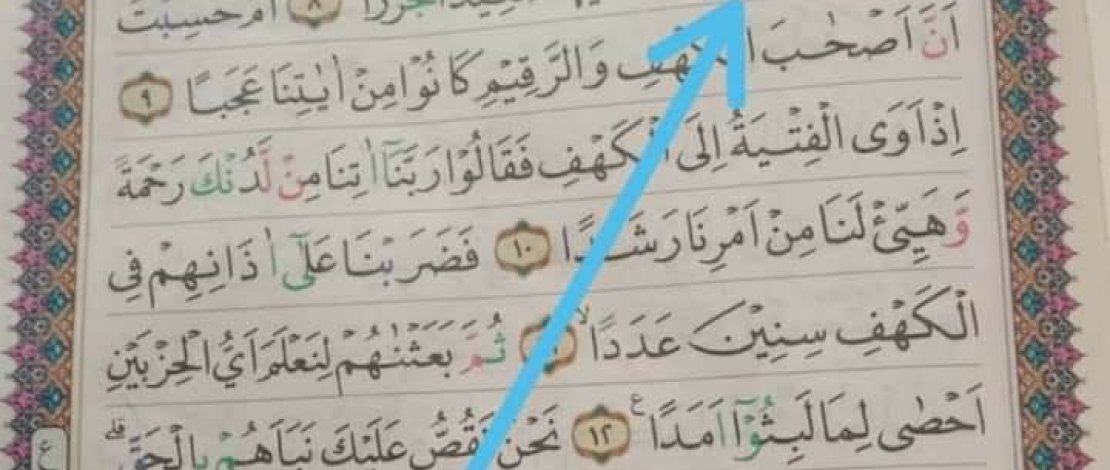 جُرُزًا ۸ اَمْ حَسِبْتَ
اَنَّ اَصْحٰبَ الْكَهْفِ وَالرَّقِيْمِ كَانُوْا مِنْ اٰيٰتِنَا عَجَبًا ۹
اِذْ اَوَى الْفِتْيَةُ اِلَى الْكَهْفِ فَقَالُوْا رَبَّنَآ اٰتِنَا مِنْ لَّدُنْكَ رَحْمَةً
وَّهَيِّئْ لَنَا مِنْ اَمْرِنَا رَشَدًا ۱۰ فَضَرَبْنَا عَلٰٓى اٰذَانِهِمْ فِى
الْكَهْفِ سِنِيْنَ عَدَدًا ۙ ثُمَّ بَعَثْنٰهُمْ لِنَعْلَمَ اَىُّ الْحِزْبَيْنِ
اَحْصٰى لِمَا لَبِثُوْٓا اَمَدًا ۱۲ ع نَحْنُ نَقُصُّ عَلَيْكَ نَبَاَهُمْ بِالْحَقِّ ۗ
ع